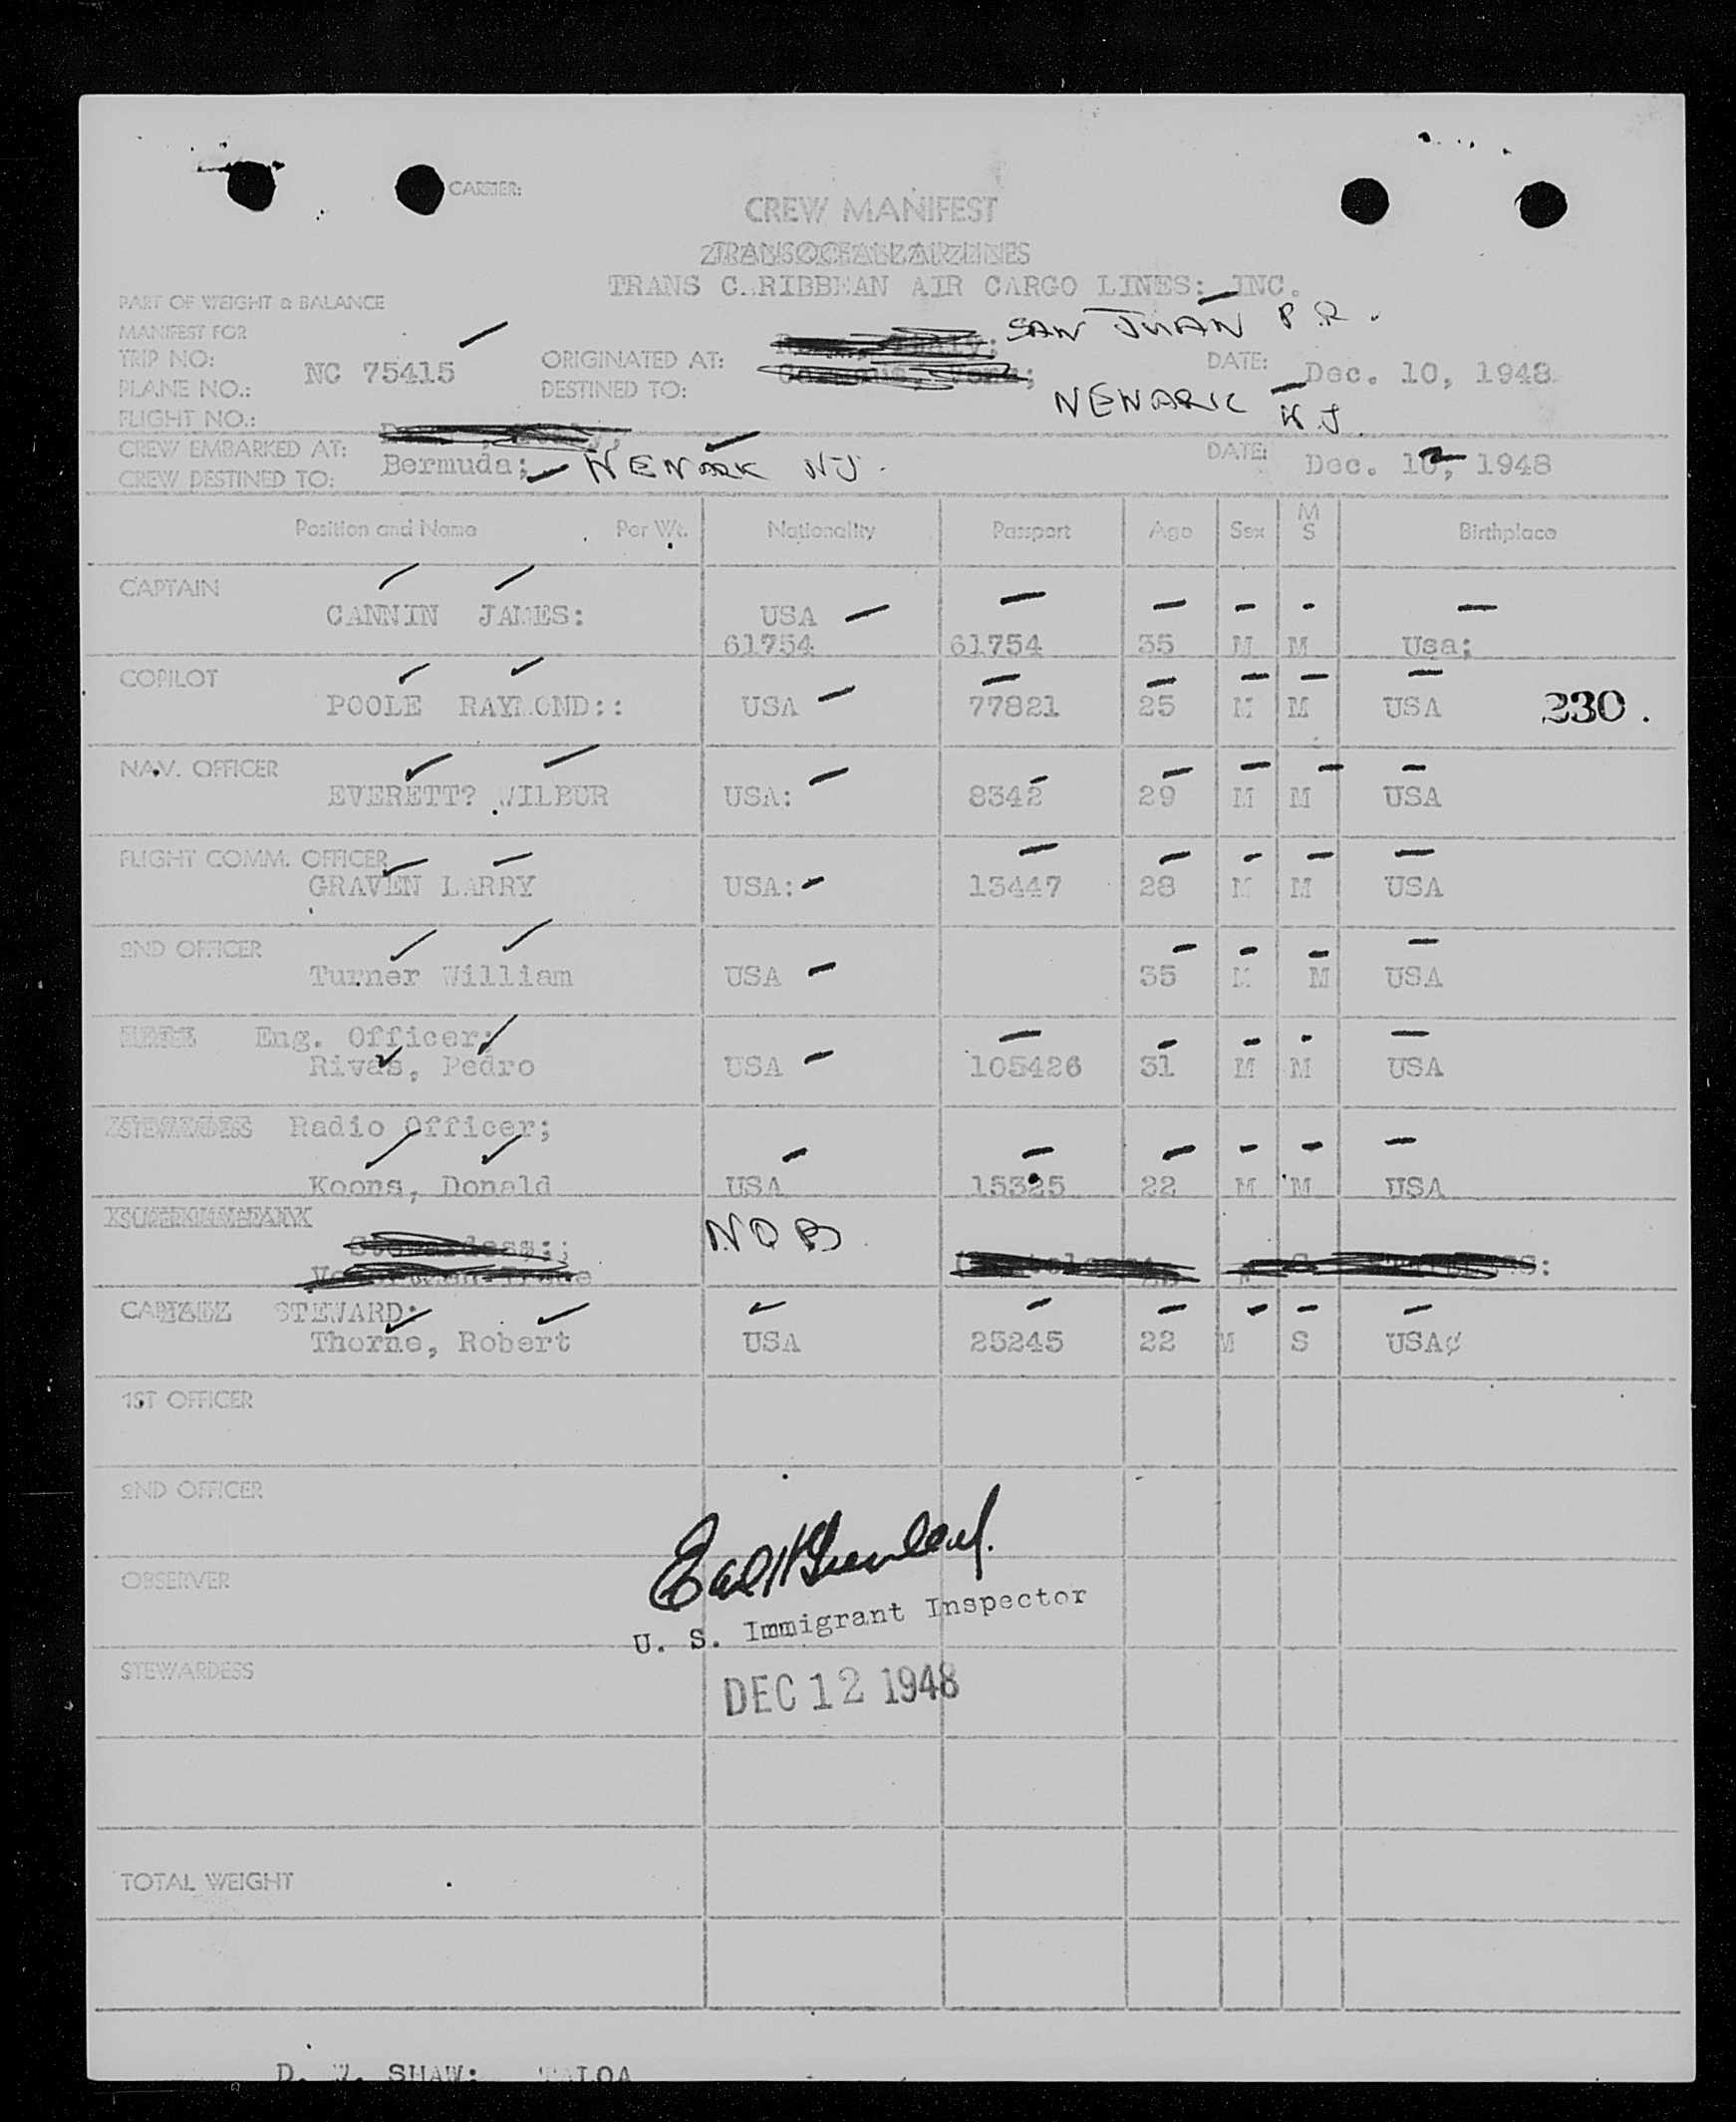 CARRIER:
CREW MANIFEST
TRANS C.RIBBEAN AIR CARGO LINES: INC.
PART OF WEIGHT & BALANCE
MANIFEST FOR
SAN JUAN P.R.
TRIP NO: NC 75415 ORIGINATED AT: DATE: Dec. 10, 1948
PLANE NO.: DESTINED TO: NEWARK N.J.
FLIGHT NO.:
CREW EMBARKED AT: DATE:
Bermuda; NEWARK NJ. Dec. 12, 1948
CREW DESTINED TO:
Position and Name Per Wt. Nationality Passport Age Sex M S Birthplace
CAPTAIN
CANNIN JAMES: USA
61754 61754 35 M M Usa;
COPILOT
POOLE RAYMOND:: USA 77821 25 M M USA 230.
NAV. OFFICER
EVERETT? WILBUR USA: 8342 29 M M USA
FLIGHT COMM. OFFICER
GRAVEN LARRY USA: 13447 28 M M USA
2ND OFFICER
Turner William USA 35 M M USA
Eng. Officer;
Rivas, Pedro USA 105426 31 M M USA
STEWARDESS Radio Officer;
Koons, Donald USA 15325 22 M M USA
NOB
STEWARD:
Thorne, Robert USA 25245 22 M S USA¢
1ST OFFICER
2ND OFFICER
OBSERVER
U. S. Immigrant Inspector
STEWARDESS
DEC 12 1948
TOTAL WEIGHT
D. W. SHAW: TALOA